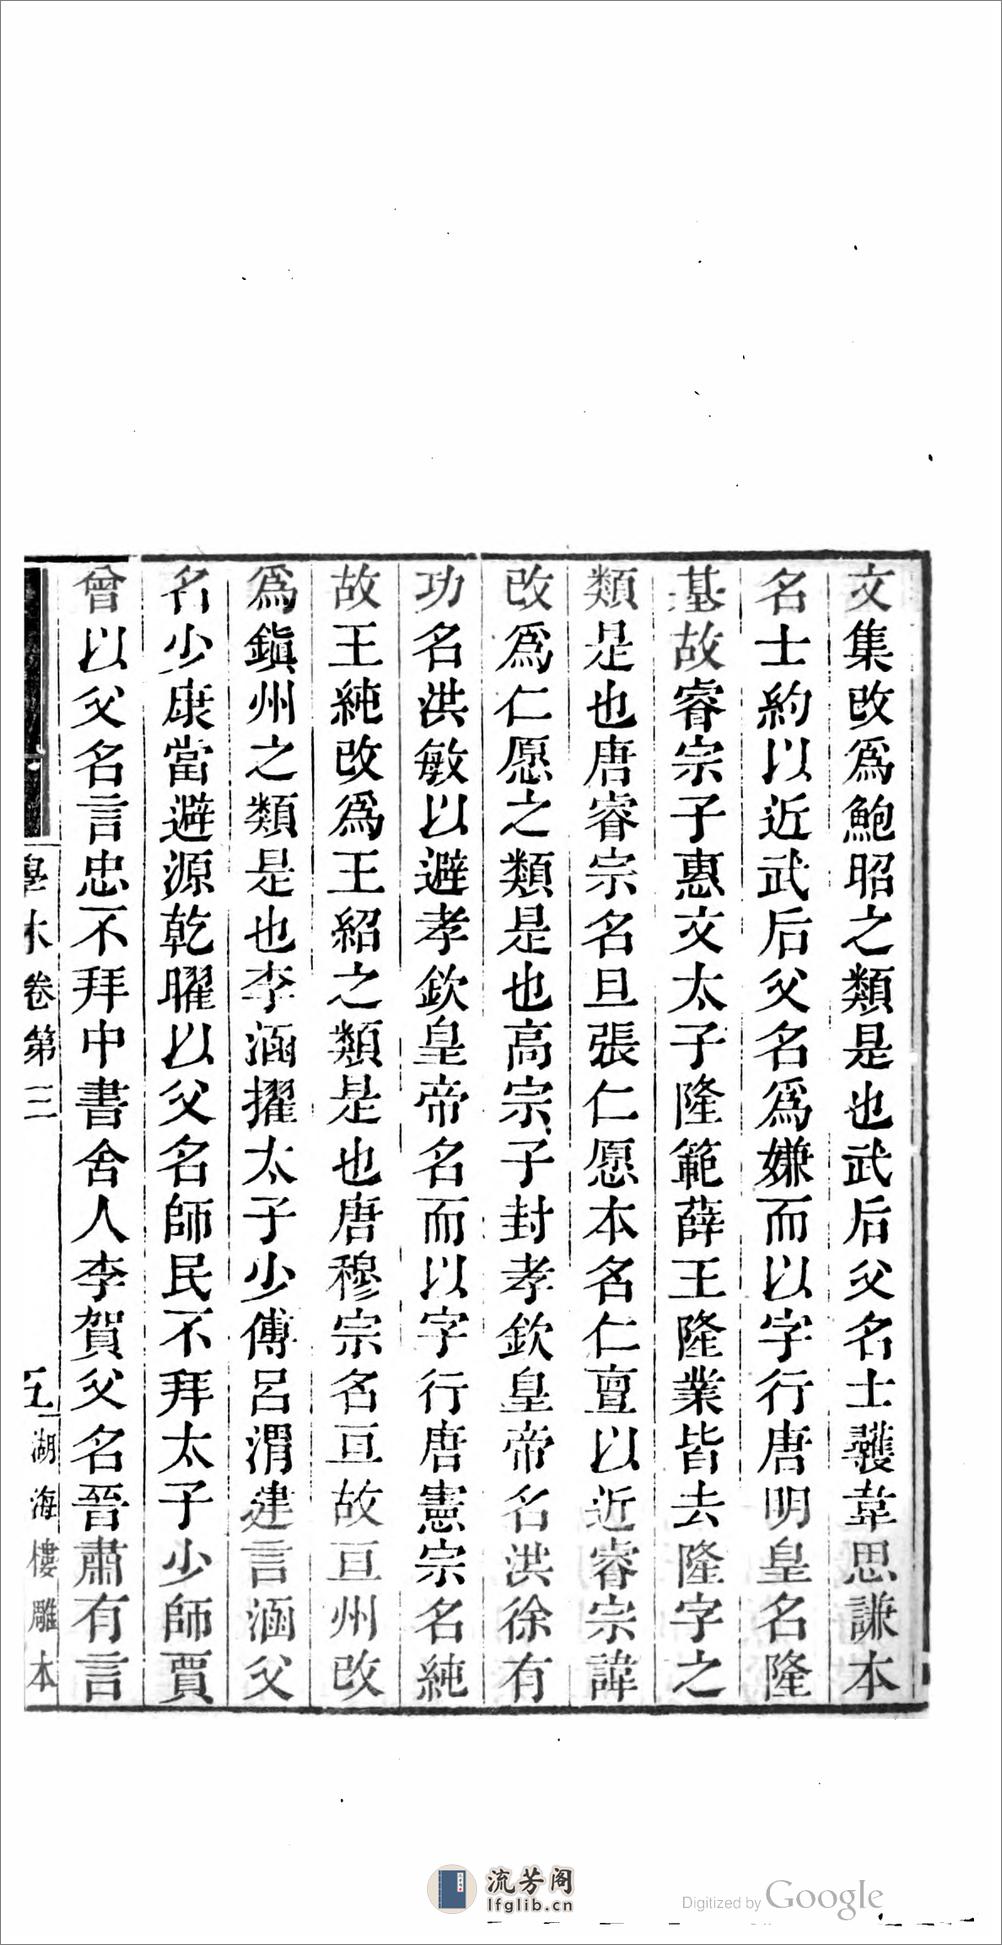 文集改爲鮑昭之類是也武后父名士彠韋思謙本
名士約以近武后父名爲嫌而以字行唐明皇名隆
基故睿宗子惠文太子隆範薛王隆業皆去隆字之
類是也唐睿宗名旦張仁愿本名仁亶以近睿宗諱
改爲仁愿之類是也高宗子封孝欽皇帝名洪徐有
功名洪敏以避孝欽皇帝名而以字行唐憲宗名純
故王純改爲王紹之類是也唐穆宗名亘故亘州改
爲鎭州之類是也李涵擢太子少傅呂渭建言涵父
名少康當避源乾曜以父名師民不拜太子少師賈
曾以父名言忠不拜中書舍人李賀父名晉肅有言
學林卷第三
五
湖海樓雕本
流芳阁
lfglib.cn
Digitized by Google